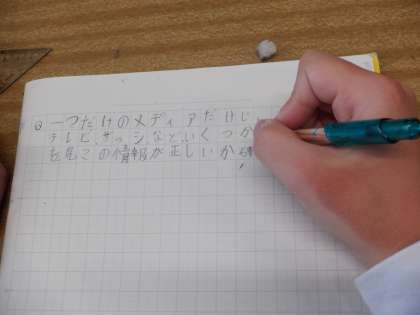 Q 一つだけのメディアだけじ
テレビ、ザッシ、など、いくつか
を見この情報が正しいか